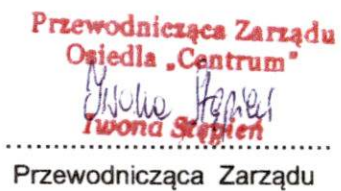 Przewodnicząca Zarządu
Osiedla „Centrum"
Iwona Stępień
Iwona Stępień
Przewodnicząca Zarządu